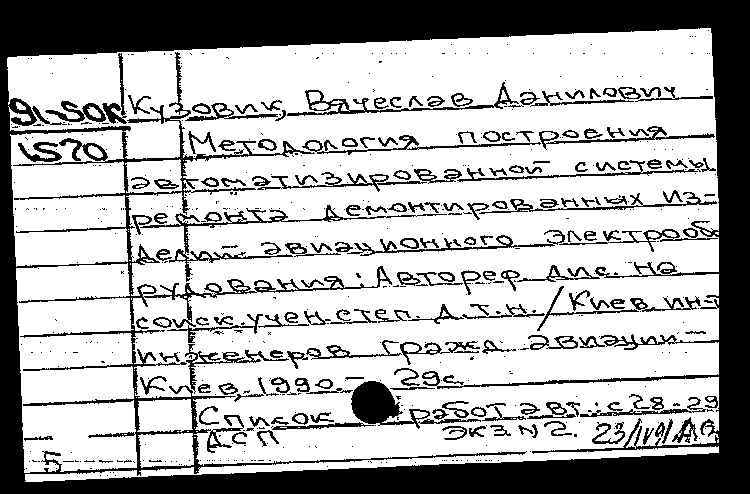 91-50к Кузовик, Вячеслав Данилович
1570 Методология построения
автоматизированной системы
ремонта демонтированных из-
делий авиационного электрооб
рудования: Автореф. дис. на
соиск. учен. степ. д.т.н. / Киев. ин-т
инженеров гражд. авиации. -
Киев, 1990. - 29с.
Список работ авт.: с 28-29
ДСП экз N 2. 23/IV91
5